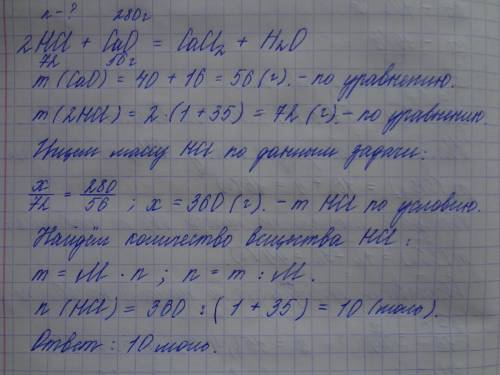 n - ? 280г
2HCl + CaO = CaCl₂ + H₂O
72
m (CaO) = 40 + 16 = 56 (г). - по уравнению.
m (2HCl) = 2 · (1 + 35) = 72 (г). - по уравнению.
Ищем массу HCl по данным задачи:
x/72 = 280/56 ; x = 360 (г). - m HCl по условию.
Найдём количество вещества HCl :
m = M · n ; n = m : M .
n (HCl) = 360 : (1 + 35) = 10 (моль).
Ответ : 10 моль.